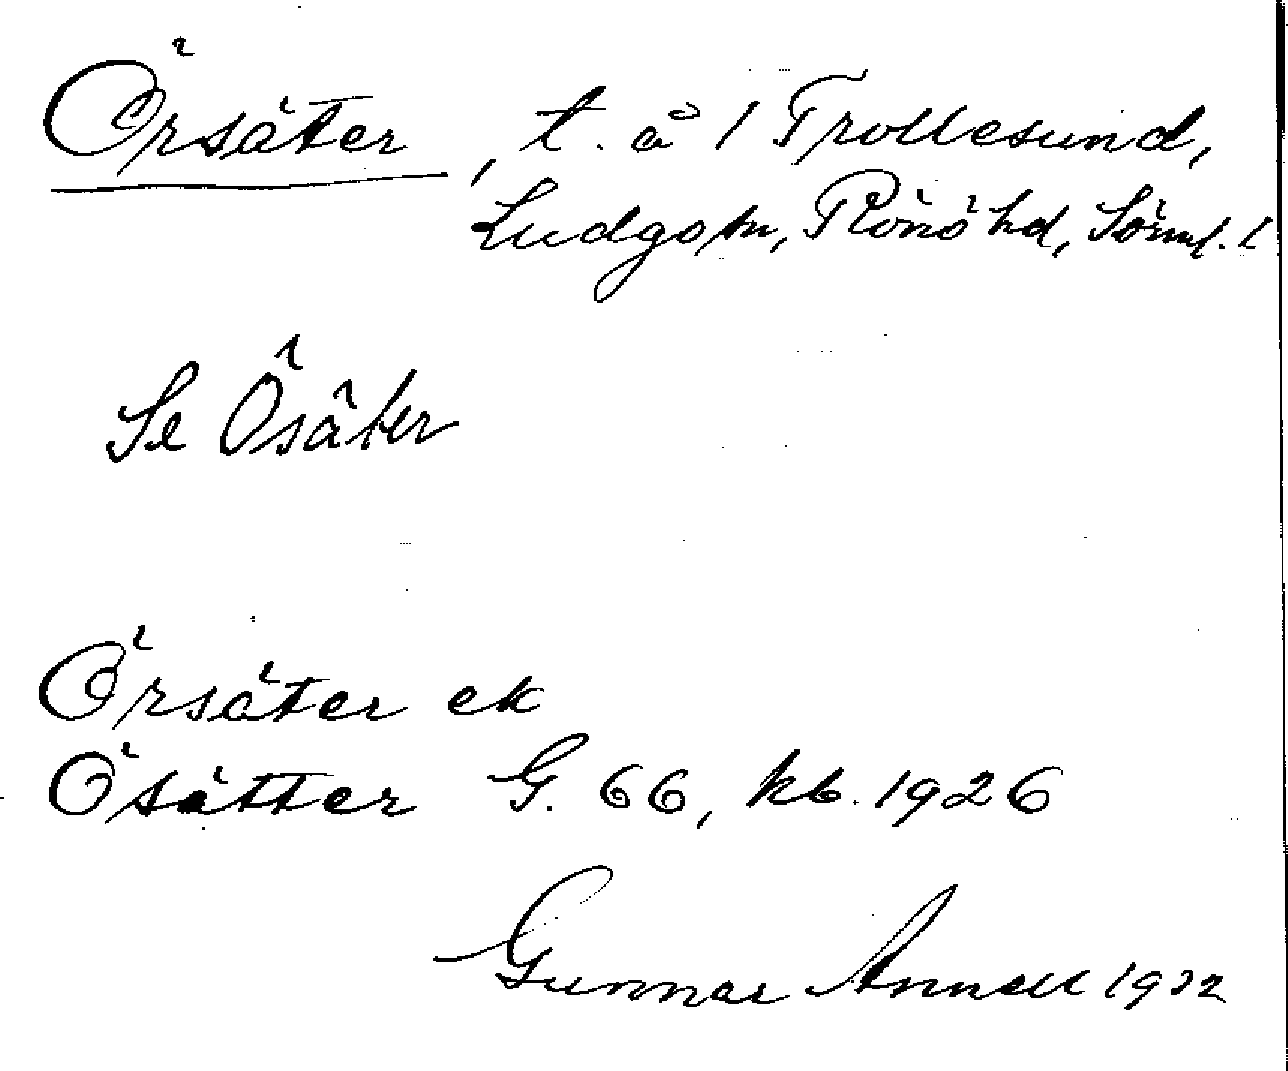 Örsäter, t. å 1 Trollesund,
Ludgo sn, Rönö hd, Sörml. l
Se Ösäter
Örsäter ek
Ösätter G. 66, kb. 1926
Gunnar Annell 1932